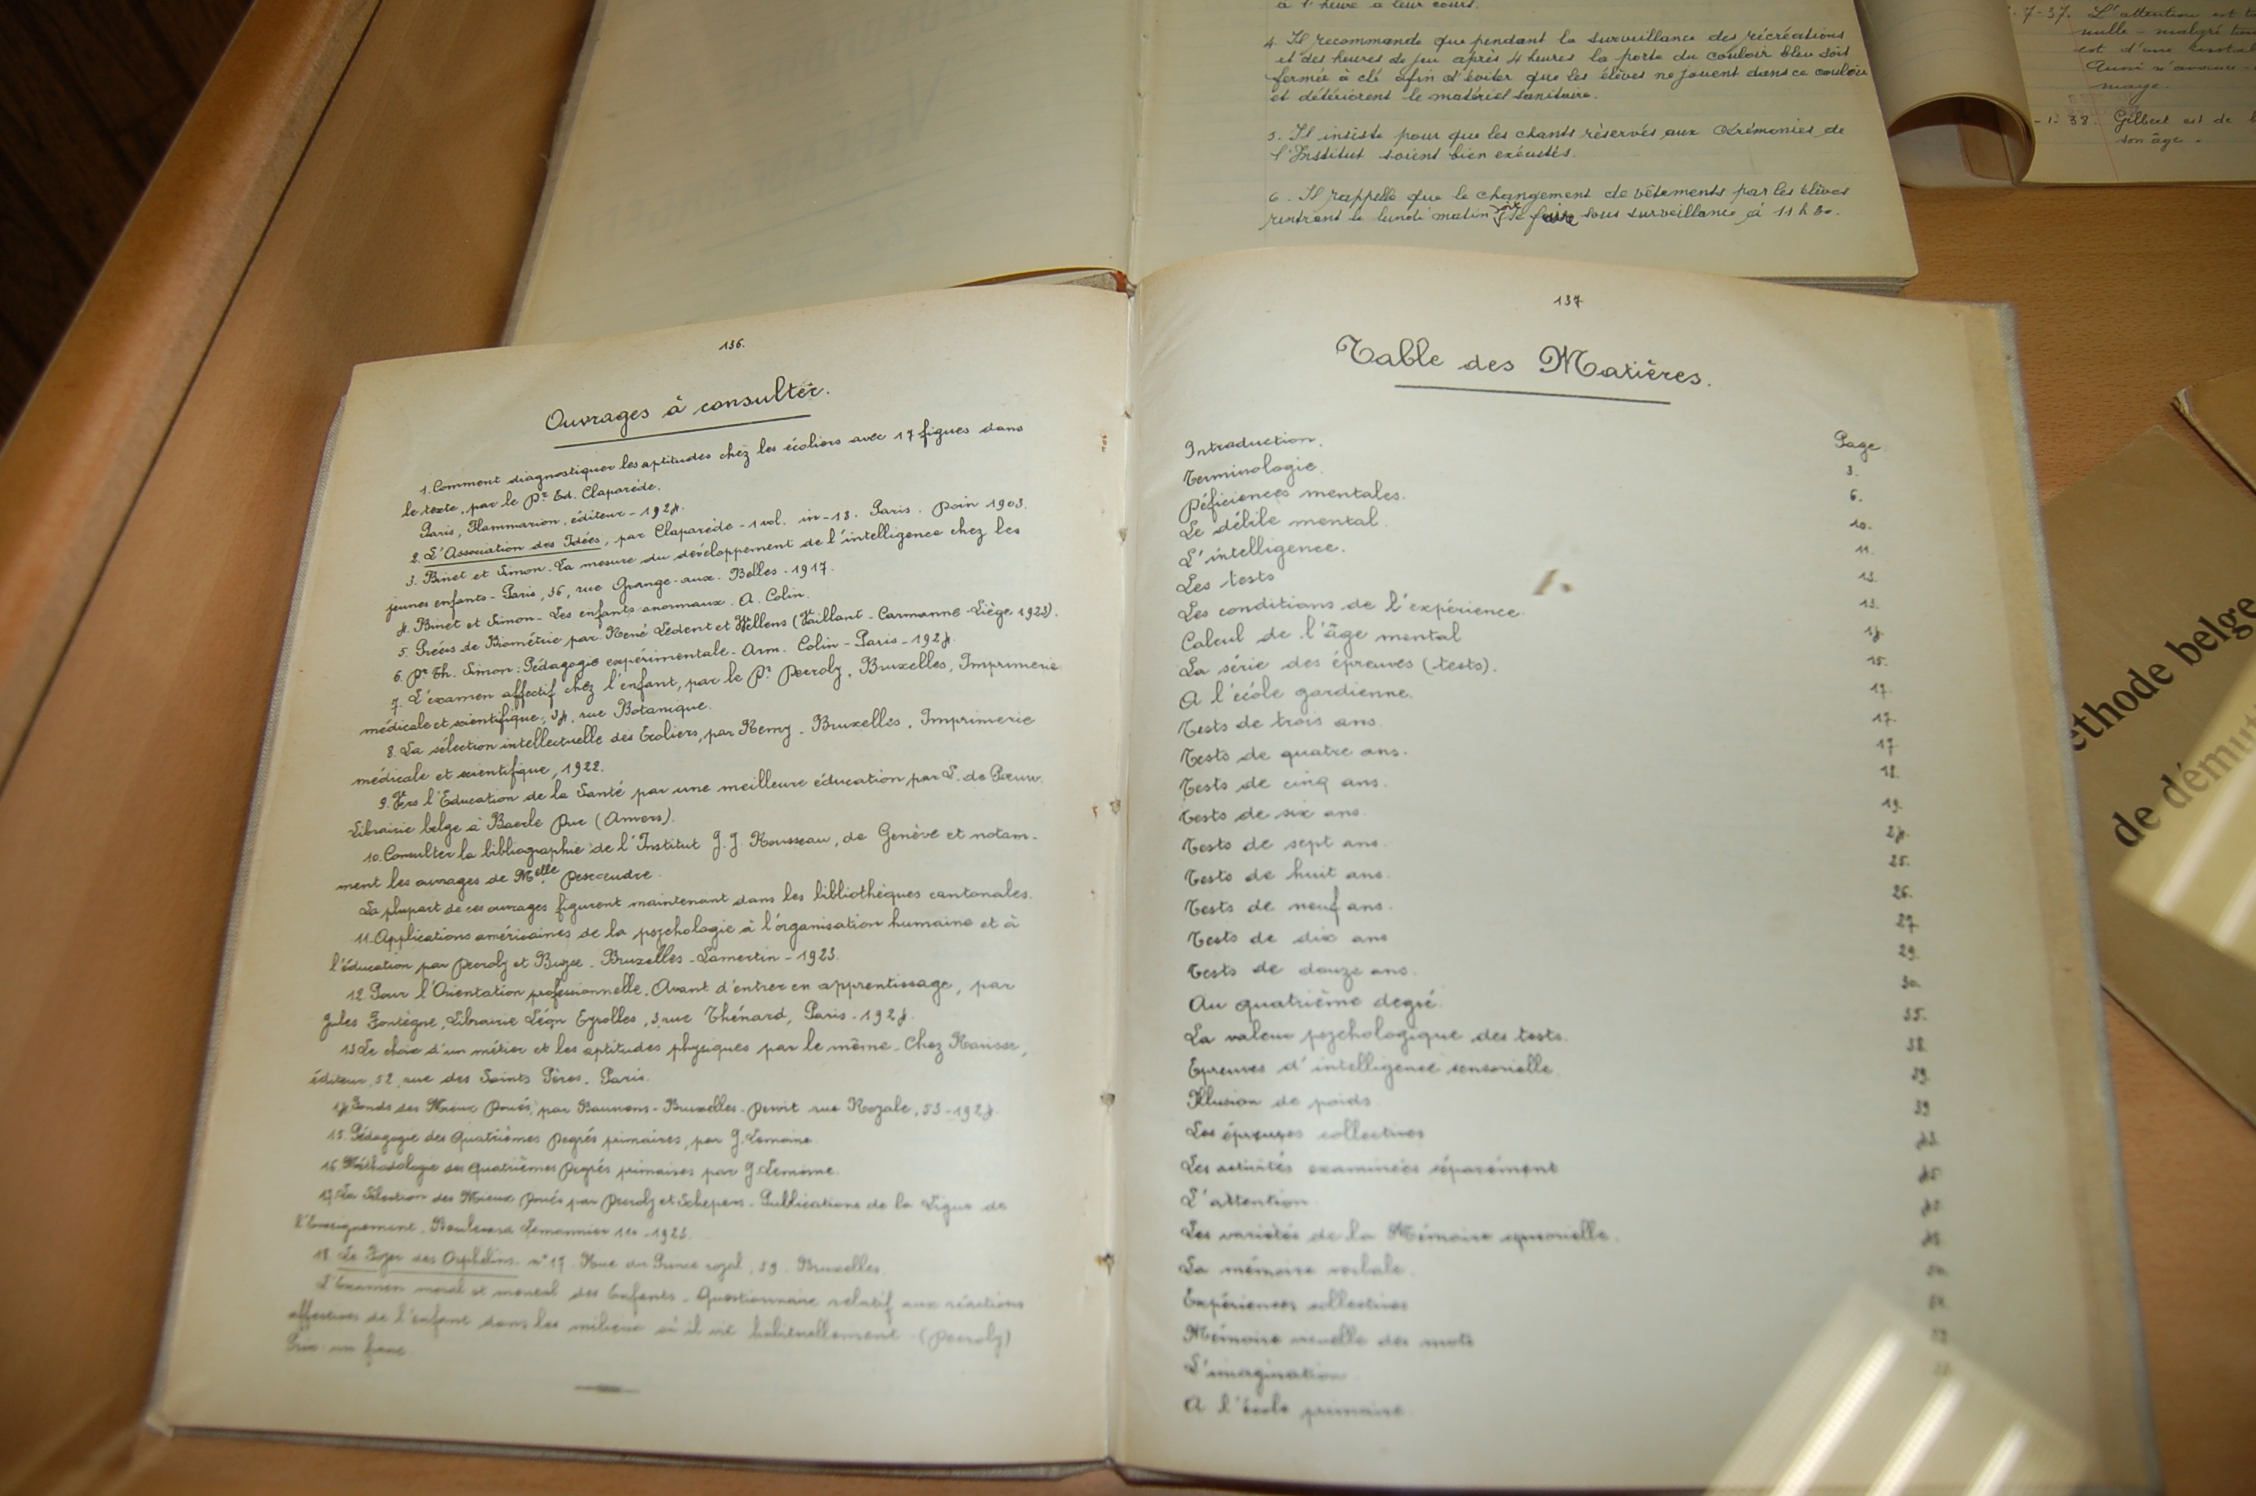 à l'heure à leur cours.
4. Il recommande que pendant la surveillance des récréations
et des heures de jeu après 4 heures la porte du couloir bleu soit
fermée à clé afin d'éviter que les élèves ne jouent dans ce couloir
et détériorent le matériel sanitaire.
5. Il insiste pour que les chants réservés aux cérémonies de
l'Institut soient bien exécutés.
6. Il rappelle que le changement de vêtements par les élèves
rentrant le lundi matin se sous surveillance à 11 h 30.
7-37. L'attention est
nulle - malgré
est d'une
1-38. Gilbert est de
son âge.
136.
Ouvrages à consulter.
1. Comment diagnostiquer les aptitudes chez les écoliers avec 17 figues dans
le texte, par le Dr Ed. Claparède.
Paris, Flammarion, éditeur - 1924.
2. L'Association des Idées, par Claparède - 1 vol. in-18. Paris. Doin 1903.
3. Binet et Simon. La mesure du développement de l'intelligence chez les
jeunes enfants - Paris, 36, rue Grange-aux-Belles - 1917.
4. Binet et Simon - Les enfants anormaux. A. Colin.
5. Précis de Biométrie par René Ledent et Wellens (Vaillant-Carmanne-Liège, 1923).
6. Dr Th. Simon: Pédagogie expérimentale - Arm. Colin - Paris - 1924.
7. L'examen affectif chez l'enfant, par le Dr Decroly, Bruxelles, Imprimerie
médicale et scientifique, 34, rue Botanique.
8. La sélection intellectuelle des Ecoliers, par Remy. Bruxelles, Imprimerie
médicale et scientifique, 1922.
9. Vers l'Education de la Santé par une meilleure éducation par L. de Paeuw.
Librairie belge à Baerle Duc (Anvers).
10. Consulter la bibliographie de l'Institut J. J. Rousseau, de Genève et notam-
ment les ouvrages de Melle Descoeudre.
La plupart de ces ouvrages figurent maintenant dans les bibliothèques cantonales.
11. Applications américaines de la psychologie à l'organisation humaine et à
l'éducation par Decroly et Buyse - Bruxelles - Lamertin - 1923.
12. Pour l'Orientation professionnelle. Avant d'entrer en apprentissage, par
Jules Fontègne, Librairie Léon Eyrolles, 3, rue Thénard, Paris - 1924.
13. Le choix d'un métier et les aptitudes physiques par le même - Chez
éditeur, 52, rue des Saints Pères. Paris.
14. Fonds des Mieux Doués, par Bauwens - Bruxelles - Dewit rue Royale, 53 - 1924.
15. Pédagogie des Quatrièmes Degrés primaires, par G. Lemoine.
16. Méthodologie des Quatrièmes Degrés primaires par G. Lemoine.
17. La Sélection des Mieux Doués par Decroly et Schepens - Publications de la Ligue de
l'Enseignement. Boulevard Lemonnier 110 - 1923.
18. Le Foyer des Orphelins. n° 17. Rue du Prince royal, 59. Bruxelles.
L'Examen moral et mental des Enfants - Questionnaire relatif aux réactions
affectives de l'enfant dans les milieux où il vit habituellement (Decroly)
Prix: un franc
137
Table des Matières.
Page
Introduction. 3.
Terminologie. 6.
Déficiences mentales. 10.
Le débile mental. 11.
L'intelligence. 13.
Les tests 13.
Les conditions de l'expérience. 14.
Calcul de l'âge mental 15.
La série des épreuves (tests). 17.
A l'école gardienne. 17.
Tests de trois ans. 17.
Tests de quatre ans. 18.
Tests de cinq ans. 19.
Tests de six ans. 24.
Tests de sept ans. 25.
Tests de huit ans. 26.
Tests de neuf ans. 27.
Tests de dix ans 29.
Tests de douze ans. 30.
Au quatrième degré. 35.
La valeur psychologique des tests. 38.
Epreuves d'intelligence sensorielle. 39.
Illusion de poids 39
Les épreuves collectives
Les activités examinées séparément
L'attention
Les variétés de la Mémoire sensorielle.
La mémoire verbale.
Expériences collectives
Mémoire visuelle des mots
L'imagination
A l'école primaire
éthode belge
de démut